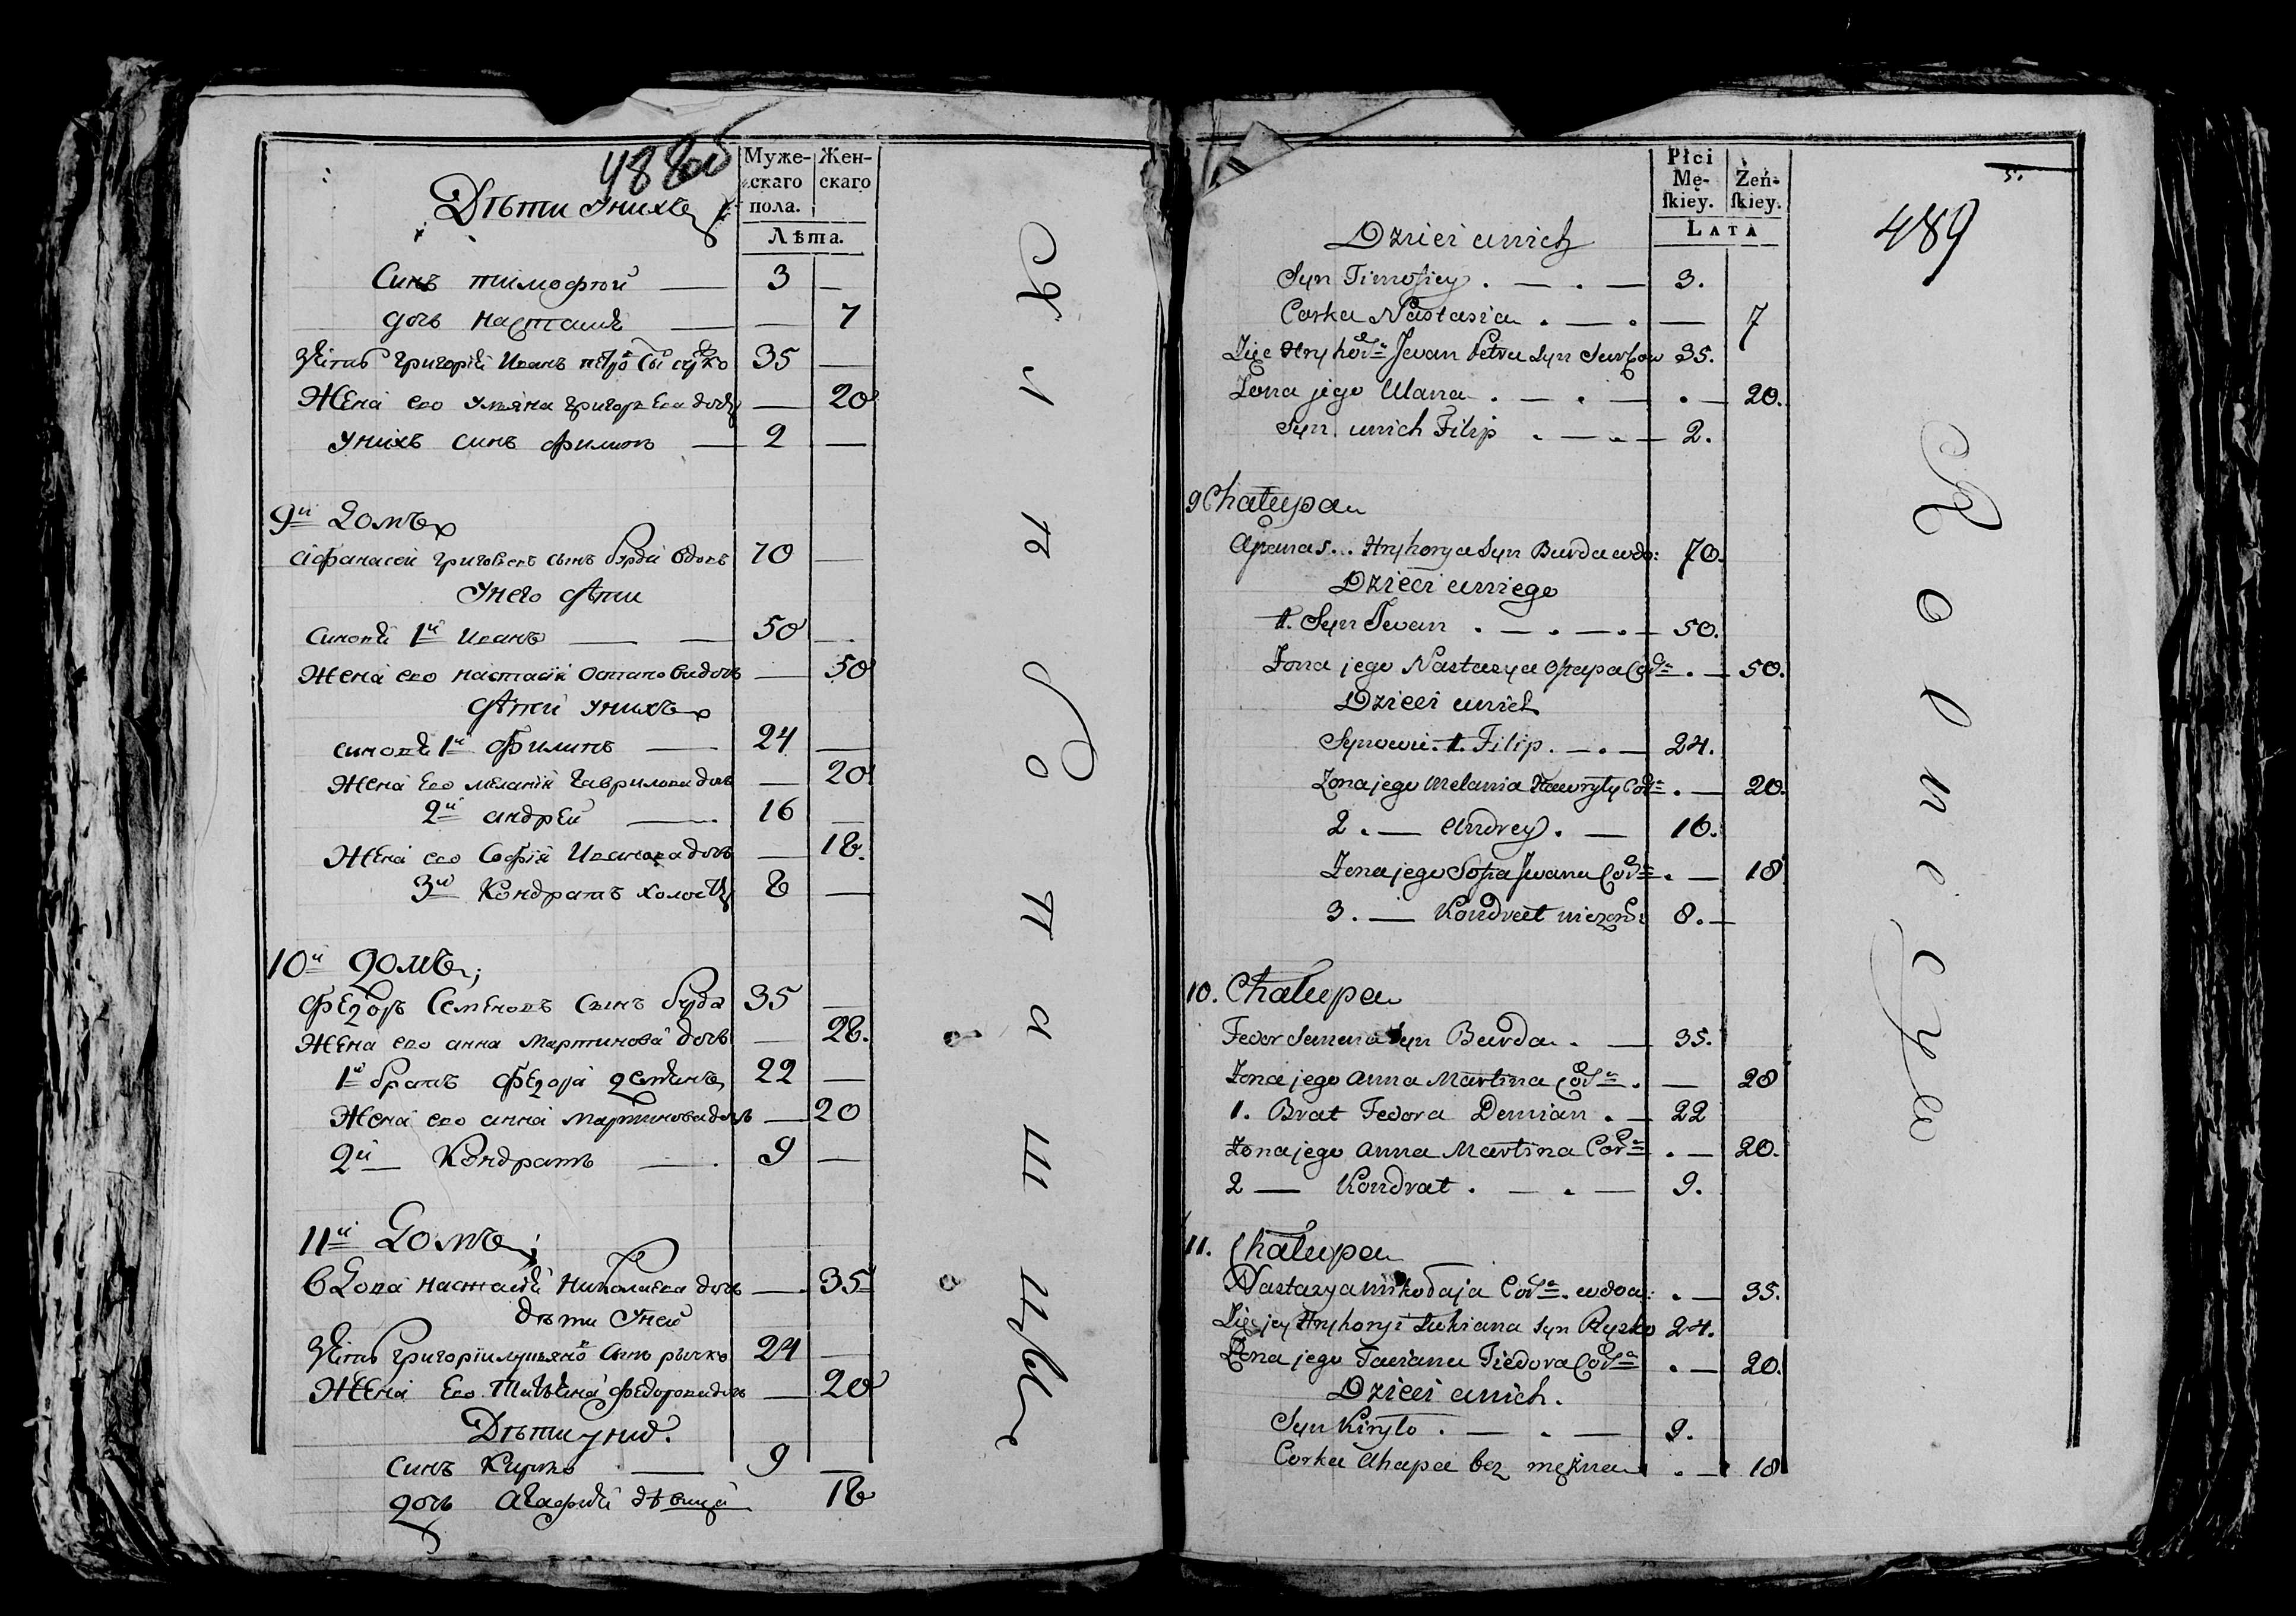 488 об
Муже-скаго пола. Жен-скаго
Лѣта.
Дѣти Унихъ
Синъ тимофѣй — 3 —
дочь настасия — — 7
Зять григорій Иванъ петро Сы 35 —
Жена его Ульяна григорьева дочь — 20
Унихъ синъ филипъ — 2 —
9й Домъ
Афанасей григорьевъ сынъ бурда вдовъ 70 —
Унего дѣти
Синовя 1й Иванъ — — 50 —
Жена его настасія Остапова дочь — 50
дѣти унихъ
синовя 1й Филипъ — 24 —
Жена Его меланія Гаврилова дочь — 20
2й андрей — 16 —
Жена его Софія Иванова дочь — 18.
3й Кондратъ холостъ 8 —
10й Домъ;
Федоръ Семеновъ Сынъ бурда 35 —
Жена его анна Мартинова дочь — 28.
1й братъ Федора демянъ 22 —
Жена его анна Мартинова дочь — 20
2й — Кондратъ — 9 —
11й Домъ;
Вдова настасія Николаева дочь — 35
дѣти Уней
Зять Григорій лукьяно Синъ рычко 24 —
Жена Его Татьяна федорова дочь — 20
Дѣти уних.
синъ Кирило — 9 —
дочь Агафия дѣвица 18
Płci Mę-ſkiey. Żeń-ſkiey.
LATA
5.
489
Dzieci unich
Syn Timofiey . — . — 3.
Corka Nastasia . — . — 7
Zięc Hryhora Jevan Petra Syn 35.
Zona jego Ulana . — . — . — 20.
Syn unich Filip . — . — 2.
9 Chałupa
Apanas... Hryhorya Syn Burda wdo: 70.
Dzieci uniego
1. Syn Jevan . — . — . — 50.
Zona jego Nastazya Ostapa Córa . — 50.
Dzieci unich
Synowie. 1. Filip. — . — 24.
Zona jego Melania Hawryły Córa . — 20.
2 . — Andrey . — 16.
Zona jego Sofia Jwana Córa . — 18
3. — Kondrat nieżon: 8. —
10. Chałupa
Fedor Semena Syn Burda . — 35.
Zona jego Anna Martina Córa . — 28
1. Brat Fedora Demian . — 22
Zona jego Anna Martina Córa . — 20.
2 — Kondrat . — . — 9.
11. Chałupa
Nastazya Mikołaja Córa. wdowa: . — 35.
Zięc jey Hryhoryi Łukiana Syn Ryzko 24.
Zona jego Tatiana Fiedora Córa . — 20.
Dzieci unich.
Syn Kiryło . — . — 9.
Corka Ahapa bez mężna . — 18